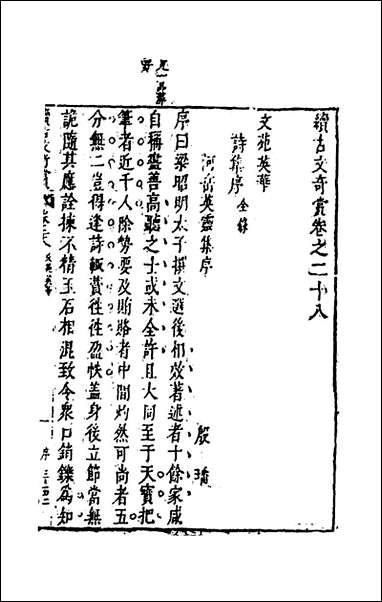 續古文奇賞卷之二十八
文苑英華
詩集序 全錄
河岳英靈集序
殷璠
序曰梁昭明太子撰文選後相效著述者十餘家咸
自稱盡善高聽之士或未全許且大同至于天寶把
筆者近千人除勢要及賄賂者中間灼然可尚者五
分無二豈得逢詩輒薈徃徃盈帙蓋身後立節當無
詭隨其應詮揀不精玉石相混致令衆口銷鑠爲知